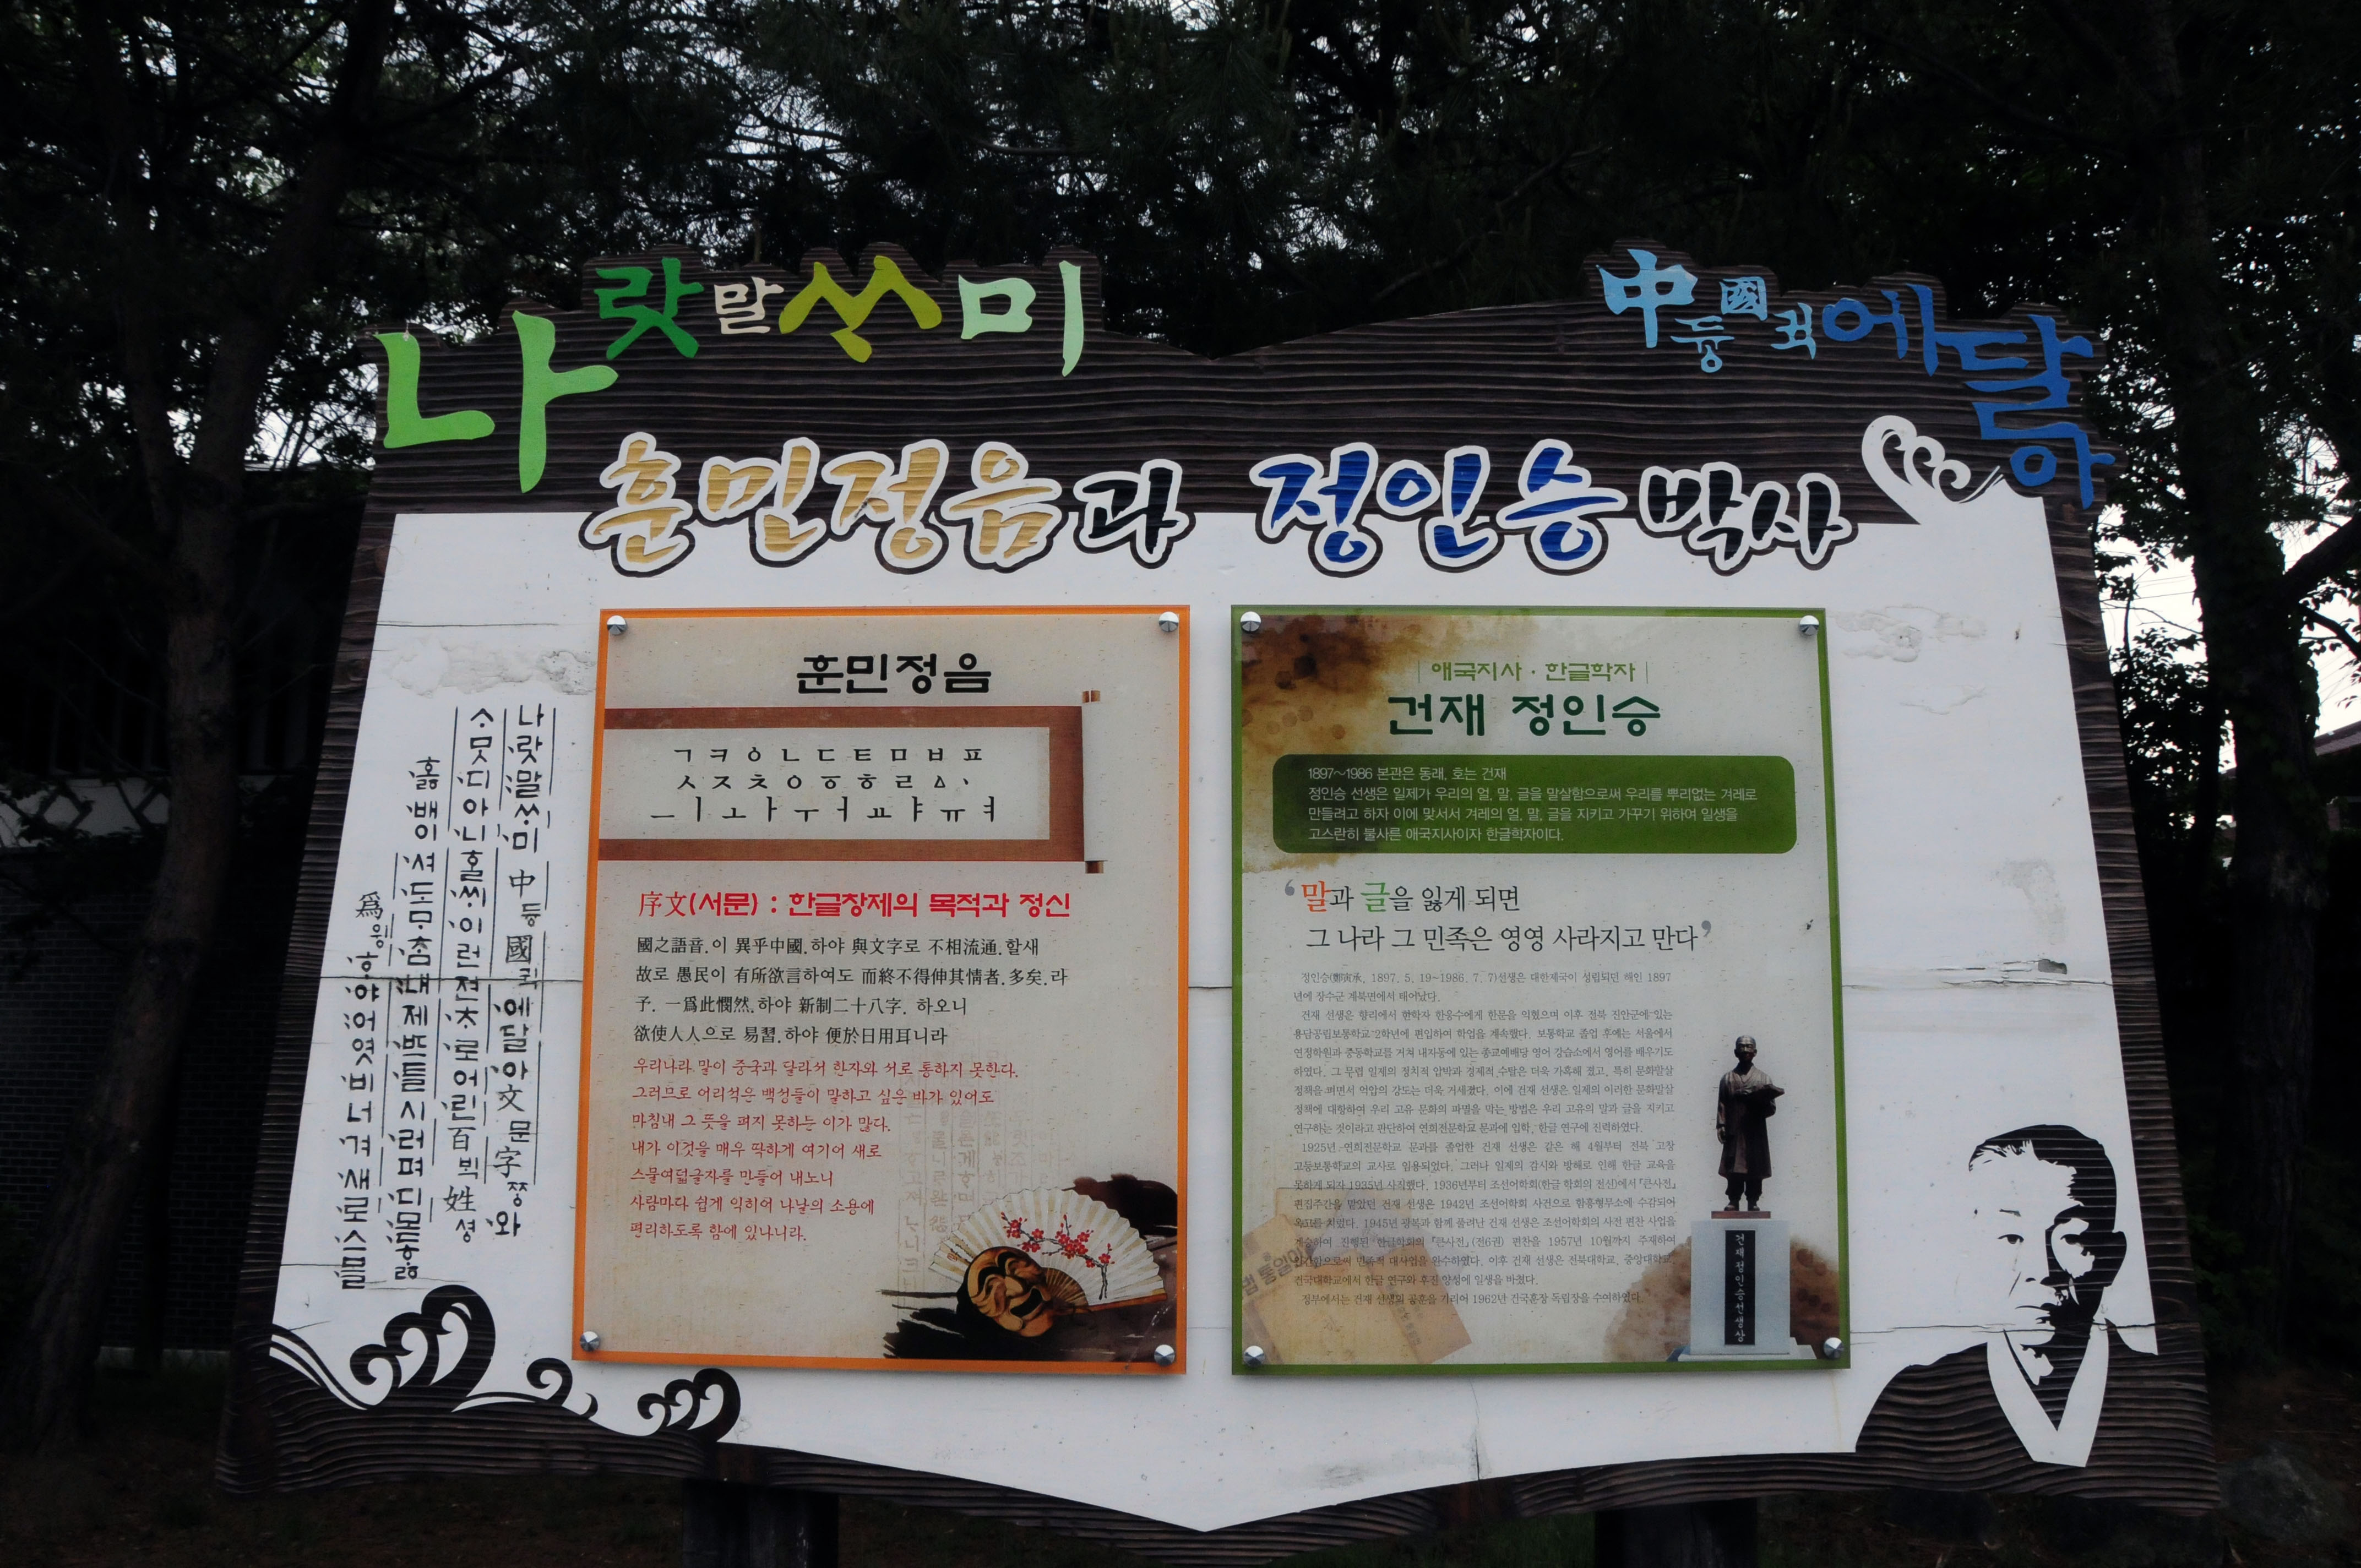 나랏말ᄊᆞ미
中듕國귁에달아
훈민정음과 정인승 박사
나랏말ᄊᆞ미 中듕國귁에달아文문字ᄍᆞᆼ와
ᄉᆞᄆᆞᆺ디아니ᄒᆞᆯᄊᆡ이런젼ᄎᆞ로어린百ᄇᆡᆨ姓셩
홇배이셔도ᄆᆞᄎᆞᆷ내제ᄠᅳ들시러펴디몯ᄒᆞᇙ
爲윙ᄒᆞ야어엿비너겨새로스믈
훈민정음
ㄱㅋㆁㄴㄷㅌㅁㅂㅍ
ㅅㅈㅊㅇㆆㅎㄹㅿㆍ
ㅡㅣㅗㅏㅜㅓㅛㅑㅠㅕ
序文(서문) : 한글창제의 목적과 정신
國之語音.이 異乎中國.하야 與文字로 不相流通.할새
故로 愚民이 有所欲言하여도 而終不得伸其情者.多矣.라
予. 一爲此憫然.하야 新制二十八字. 하오니
欲使人人으로 易習.하야 便於日用耳니라
우리나라 말이 중국과 달라서 한자와 서로 통하지 못한다.
그러므로 어리석은 백성들이 말하고 싶은 바가 있어도
마침내 그 뜻을 펴지 못하는 이가 많다.
내가 이것을 매우 딱하게 여기어 새로
스물여덟글자를 만들어 내노니
사람마다 쉽게 익히어 나날의 소용에
편리하도록 함에 있나니라.
애국지사 · 한글학자
건재 정인승
1897~1986 본관은 동래, 호는 건재
정인승 선생은 일제가 우리의 얼, 말, 글을 말살함으로써 우리를 뿌리없는 겨레로
만들려고 하자 이에 맞서서 겨레의 얼, 말, 글을 지키고 가꾸기 위하여 일생을
고스란히 불사른 애국지사이자 한글학자이다.
‘말과 글을 잃게 되면
그 나라 그 민족은 영영 사라지고 만다’
정인승(鄭寅承, 1897. 5. 19~1986. 7. 7)선생은 대한제국이 성립되던 해인 1897
년에 장수군 계북면에서 태어났다.
건재 선생은 향리에서 한학자 한웅수에게 한문을 익혔으며 이후 전북 진안군에 있는
용담공립보통학교 2학년에 편입하여 학업을 계속했다. 보통학교 졸업 후에는 서울에서
연정학원과 중동학교를 거쳐 내자동에 있는 종교예배당 영어 강습소에서 영어를 배우기도
하였다. 그 무렵 일제의 정치적 압박과 경제적 수탈은 더욱 가혹해 졌고, 특히 문화말살
정책을 펴면서 억압의 강도는 더욱 거세졌다. 이에 건재 선생은 일제의 이러한 문화말살
정책에 대항하여 우리 고유 문화의 파멸을 막는 방법은 우리 고유의 말과 글을 지키고
연구하는 것이라고 판단하여 연희전문학교 문과에 입학, 한글 연구에 진력하였다.
1925년 연희전문학교 문과를 졸업한 건재 선생은 같은 해 4월부터 전북 고창
고등보통학교의 교사로 임용되었다. 그러나 일제의 감시와 방해로 인해 한글 교육을
못하게 되자 1935년 사직했다. 1936년부터 조선어학회(한글 학회의 전신)에서 『큰사전』
편집주간을 맡았던 건재 선생은 1942년 조선어학회 사건으로 함흥형무소에 수감되어
옥고를 치렀다. 1945년 광복과 함께 풀려난 건재 선생은 조선어학회의 사전 편찬 사업을
계승하여 진행된 한글학회의 『큰사전』(전6권) 편찬을 1957년 10월까지 주재하여
민족적 대사업을 완수하였다. 이후 건재 선생은 전북대학교, 중앙대학교,
건국대학교에서 한글 연구와 후진 양성에 일생을 바쳤다.
정부에서는 건재 선생의 공훈를 기리어 1962년 건국훈장 독립장을 수여하였다.
건재정인승선생상